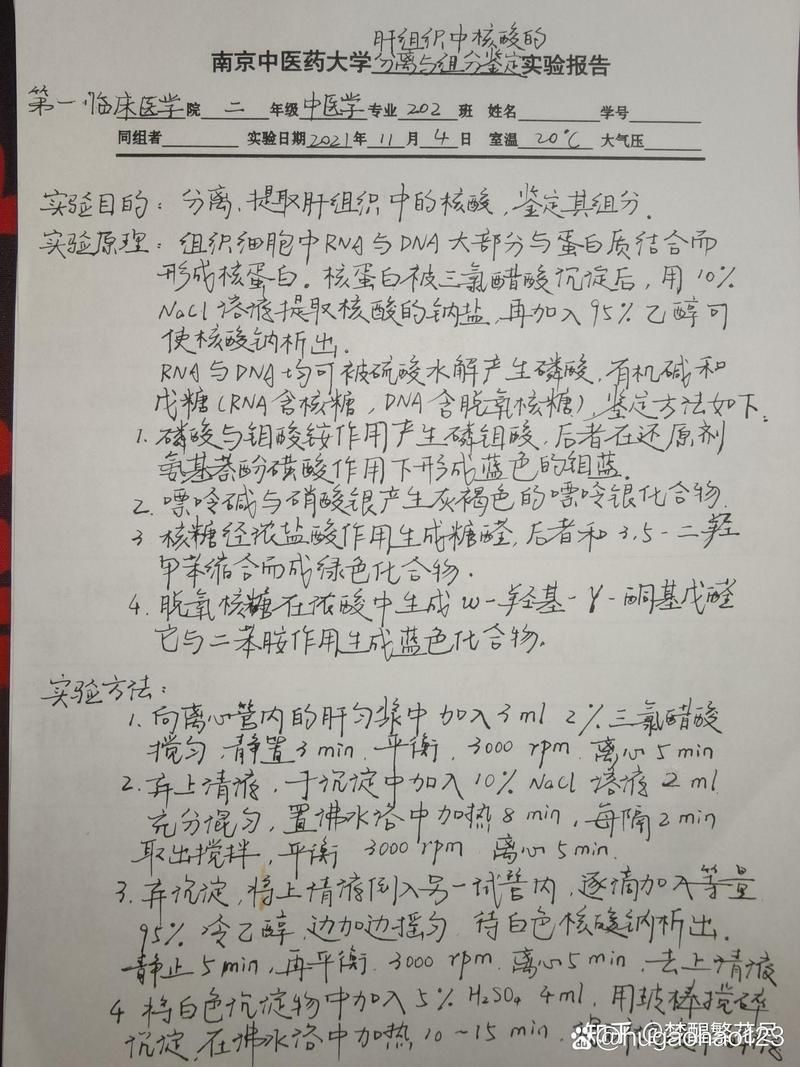 肝组织中核酸的
南京中医药大学分离与组分鉴定实验报告
第一临床医学院 二 年级 中医学 专业 202 班 姓名 学号
同组者 实验日期 2021 年 11 月 4 日 室温 20℃ 大气压
实验目的：分离、提取肝组织中的核酸，鉴定其组分.
实验原理：组织细胞中RNA与DNA大部分与蛋白质结合而
形成核蛋白. 核蛋白被三氯醋酸沉淀后，用10%
NaCl溶液提取核酸的钠盐，再加入95%乙醇可
使核酸钠析出.
RNA与DNA均可被硫酸水解产生磷酸，有机碱和
戊糖（RNA含核糖，DNA含脱氧核糖），鉴定方法如下：
1. 磷酸与钼酸铵作用产生磷钼酸，后者在还原剂
氨基萘酚磺酸作用下形成蓝色的钼蓝.
2. 嘌呤碱与硝酸银产生灰褐色的嘌呤银化合物
3 核糖经浓盐酸作用生成糖醛，后者和3,5-二羟
甲苯缩合而成绿色化合物.
4. 脱氧核糖在浓酸中生成ω-羟基-γ-酮基戊醛
它与二苯胺作用生成蓝色化合物.
实验方法：
1. 向离心管内的肝匀浆中加入3ml 2%三氯醋酸
搅匀，静置3min，平衡，3000rpm 离心5min
2. 弃上清液，于沉淀中加入10% NaCl溶液2ml
充分混匀，置沸水浴中加热8min，每隔2min
取出搅拌，平衡 3000rpm 离心5min.
3. 弃沉淀，将上清液倒入另一试管内，逐滴加入等量
95%冷乙醇，边加边摇匀 待白色核酸钠析出.
静止5min，再平衡 3000rpm 离心5min，去上清液
4 将白色沉淀物中加入5% H₂SO₄ 4ml，用玻棒搅碎
沉淀，在沸水浴中加热10~15min
知乎 @梦醒繁花尽
@hugaohaot23